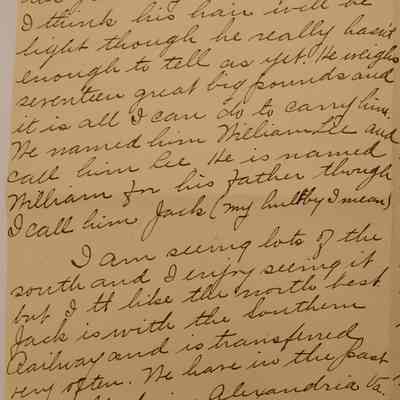 I think his hair will be
light though he really hasn't
enough to tell as yet. He weighs
seventeen great big pounds and
it is all I can do to carry him.
We named him William Lee and
call him Lee He is named
William for his father though
I call him Jack (my hubby I mean)
I am seeing lots of the
south and I enjoy seeing it
but I th like the north best
Jack is with the Southern
Railway and is transferred
very often. We have in the past
Alexandria Va.